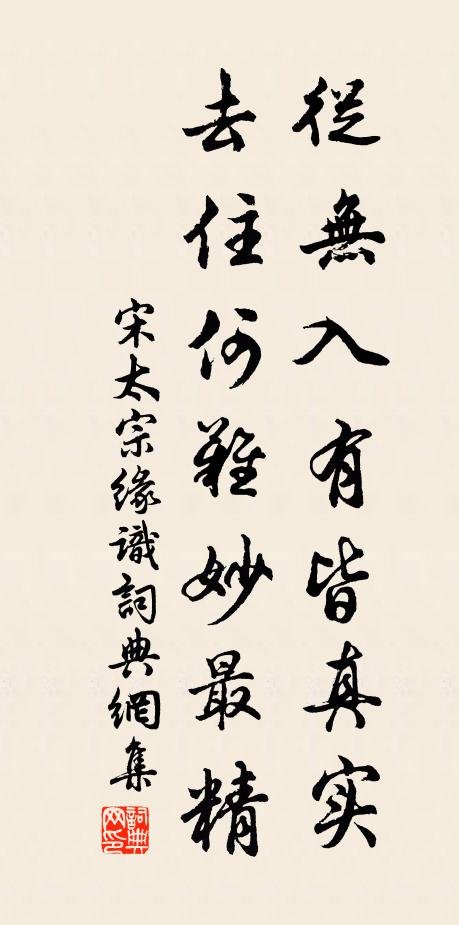 從無入有皆真实
去住何難妙最精
宋太宗緣識詞典網集
詞典网印